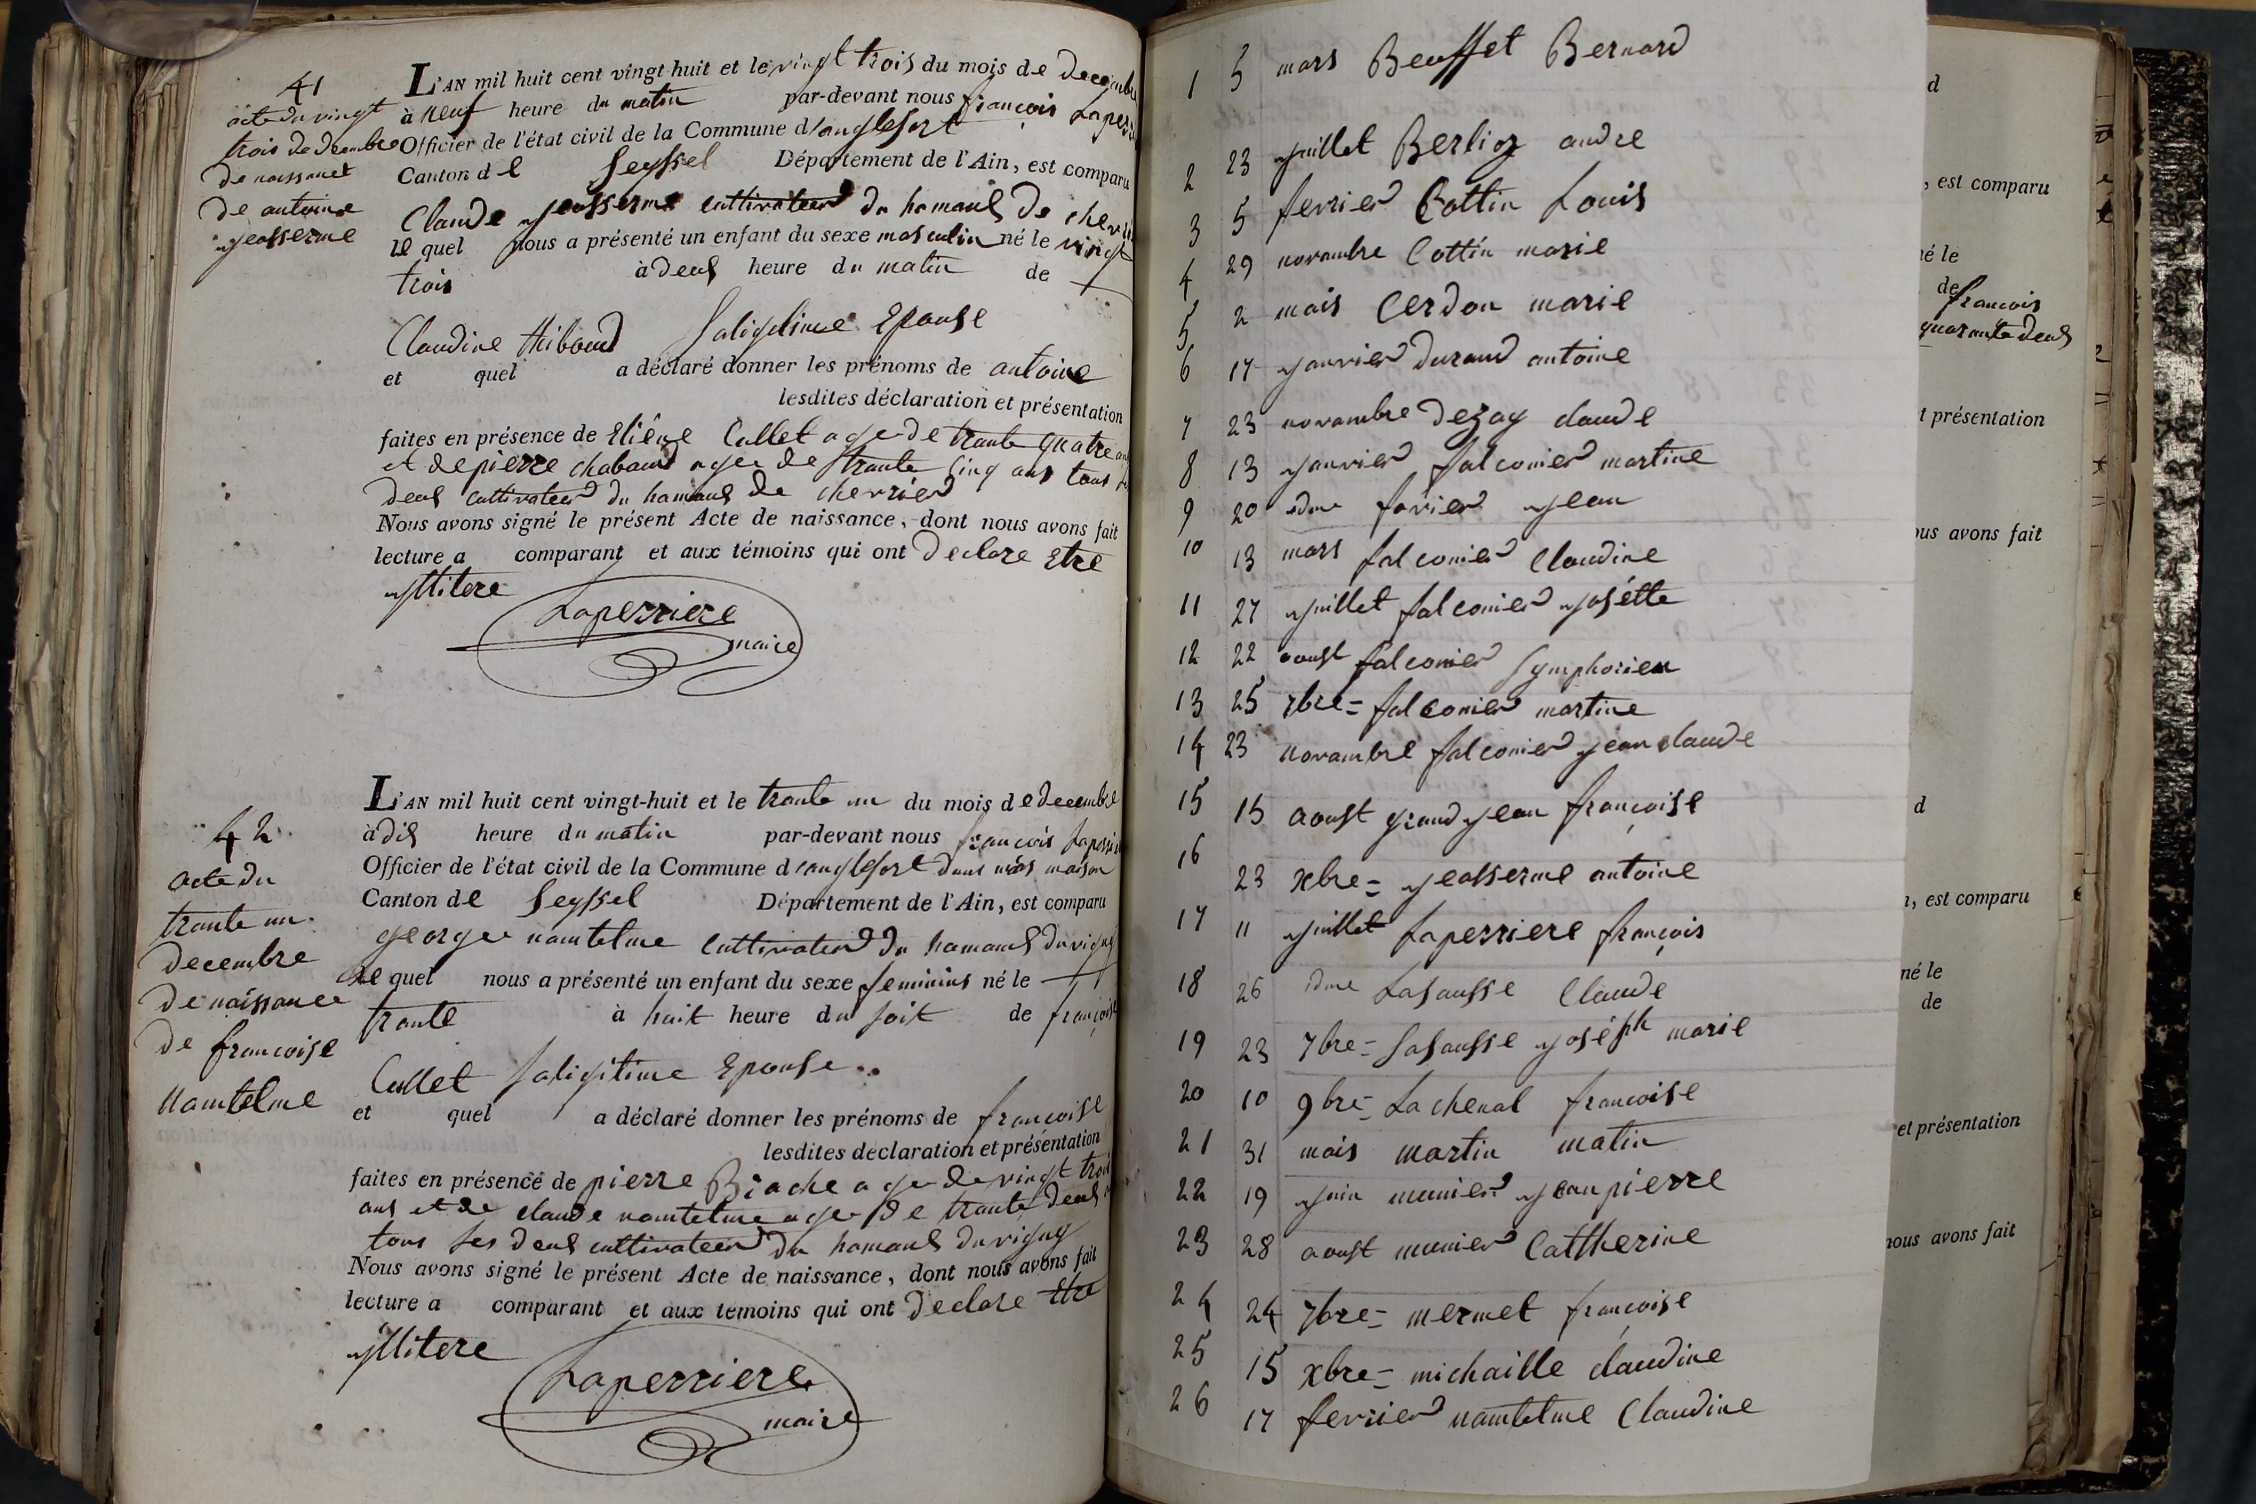 41
acte du vingt
trois de decembre
de naissance
de antoine
yeasserme
L'AN mil huit cent vingt-huit et le vingt trois du mois de decembre
à neuf heure du matin par-devant nous françois Laperri
Officier de l'état civil de la Commune d'anglefort
Canton de Seyssel Département de l'Ain, est comparu
Claude yeasserme cultivateur du hamaus de
le quel nous a présenté un enfant du sexe masculin né le vingt
trois à deus heure du matin de
Claudine thibaud Epouse
et quel a déclaré donner les prénoms de antoine
lesdites déclaration et présentation
faites en présence de Cullet age de trante quatre
et de pierre chabaud age de trante cinq ans tous
deus cultivateur du hamaus de cherrier
Nous avons signé le présent Acte de naissance, dont nous avons fait
lecture a comparant et aux témoins qui ont declare Etre
yllitere
Laperriere
maire
42
acte du
trante un
decembre
de naissance
de francoise
namtelme
L'AN mil huit cent vingt-huit et le trante un du mois de decembre
à dis heure du matin par-devant nous françois Laperri
Officier de l'état civil de la Commune d'anglefort dans maison
Canton de Seyssel Département de l'Ain, est comparu
george namtelme cultivateur du hamaus du vigny
le quel nous a présenté un enfant du sexe feminins né le
trante à huit heure du soit de françoise
Cullet Epouse
et quel a déclaré donner les prénoms de francoise
lesdites declaration et présentation
faites en présence de pierre Brache age de vingt trois
ans et de claude namtelme age de trante deus
tous les deus cultivateur du hamaus du vigny
Nous avons signé le présent Acte de naissance, dont nous avons fait
lecture a comparant et aux temoins qui ont declare Etre
yllitere
Laperriere
maire
1 5 mars Beuffet Bernard
2 23 yuillet Berlioz andre
3 5 ferrier Cottin Louis
4 29 novambre Cottin marie
5 2 mais Cerdon marie
6 17 yanvier durand antoine
7 23 novambre dezay claude
8 13 yanvier falconier martine
9 20 idme favier yean
10 13 mars falconier Claudine
11 27 yuillet falconier yosétte
12 22 aoust falconier Symphorien
13 25 7bre= falconier martine
14 23 novambre falconier yean claude
15 15 aoust grand yean françoise
16 23 xbre= yeasserme antoine
17 11 yuillet Laperriere françois
18 26 idme Lasausse Claude
19 23 7bre= Lasausse yoséph marie
20 10 9bre= Lachenal francoise
21 31 mais martin matin
22 19 yuin munier yean pierre
23 28 aoust munier Cattherine
24 24 7bre= mermet françoise
25 15 xbre= michaille claudine
26 17 ferrier namtelme Claudine
d
, est comparu
né le
de
francois
quarante deus
t présentation
ous avons fait
d
n, est comparu
né le
de
et présentation
nous avons fait